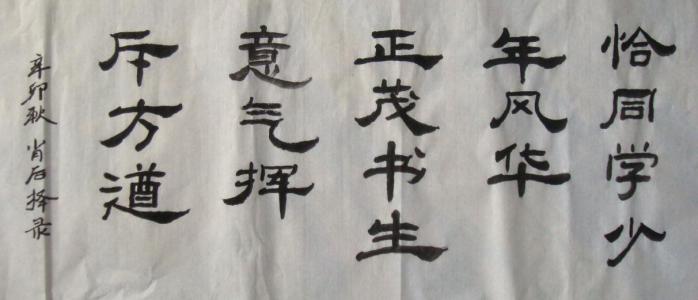 恰同学少
年风华
正茂书生
意气挥
斥方遒
辛卯秋肖石择录